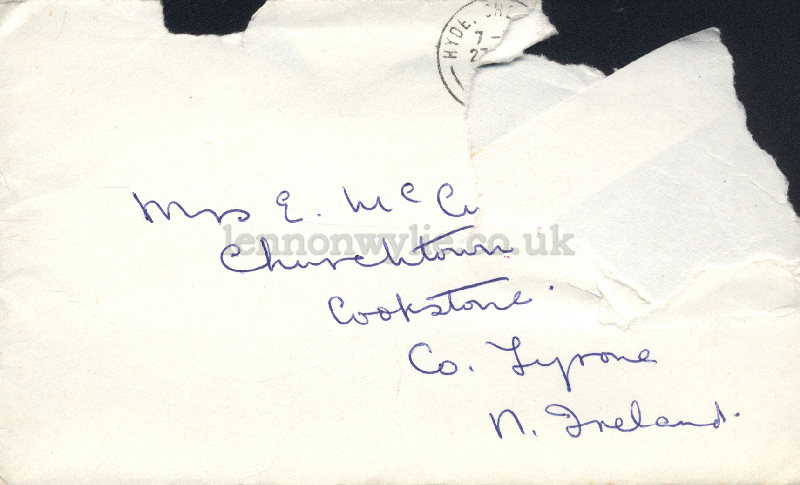 HYDE, CHE
7 -
27
Mrs E. McC
lennonwylie.co.uk
Churchtown
Cookstone.
Co. Tyrone
N. Ireland.